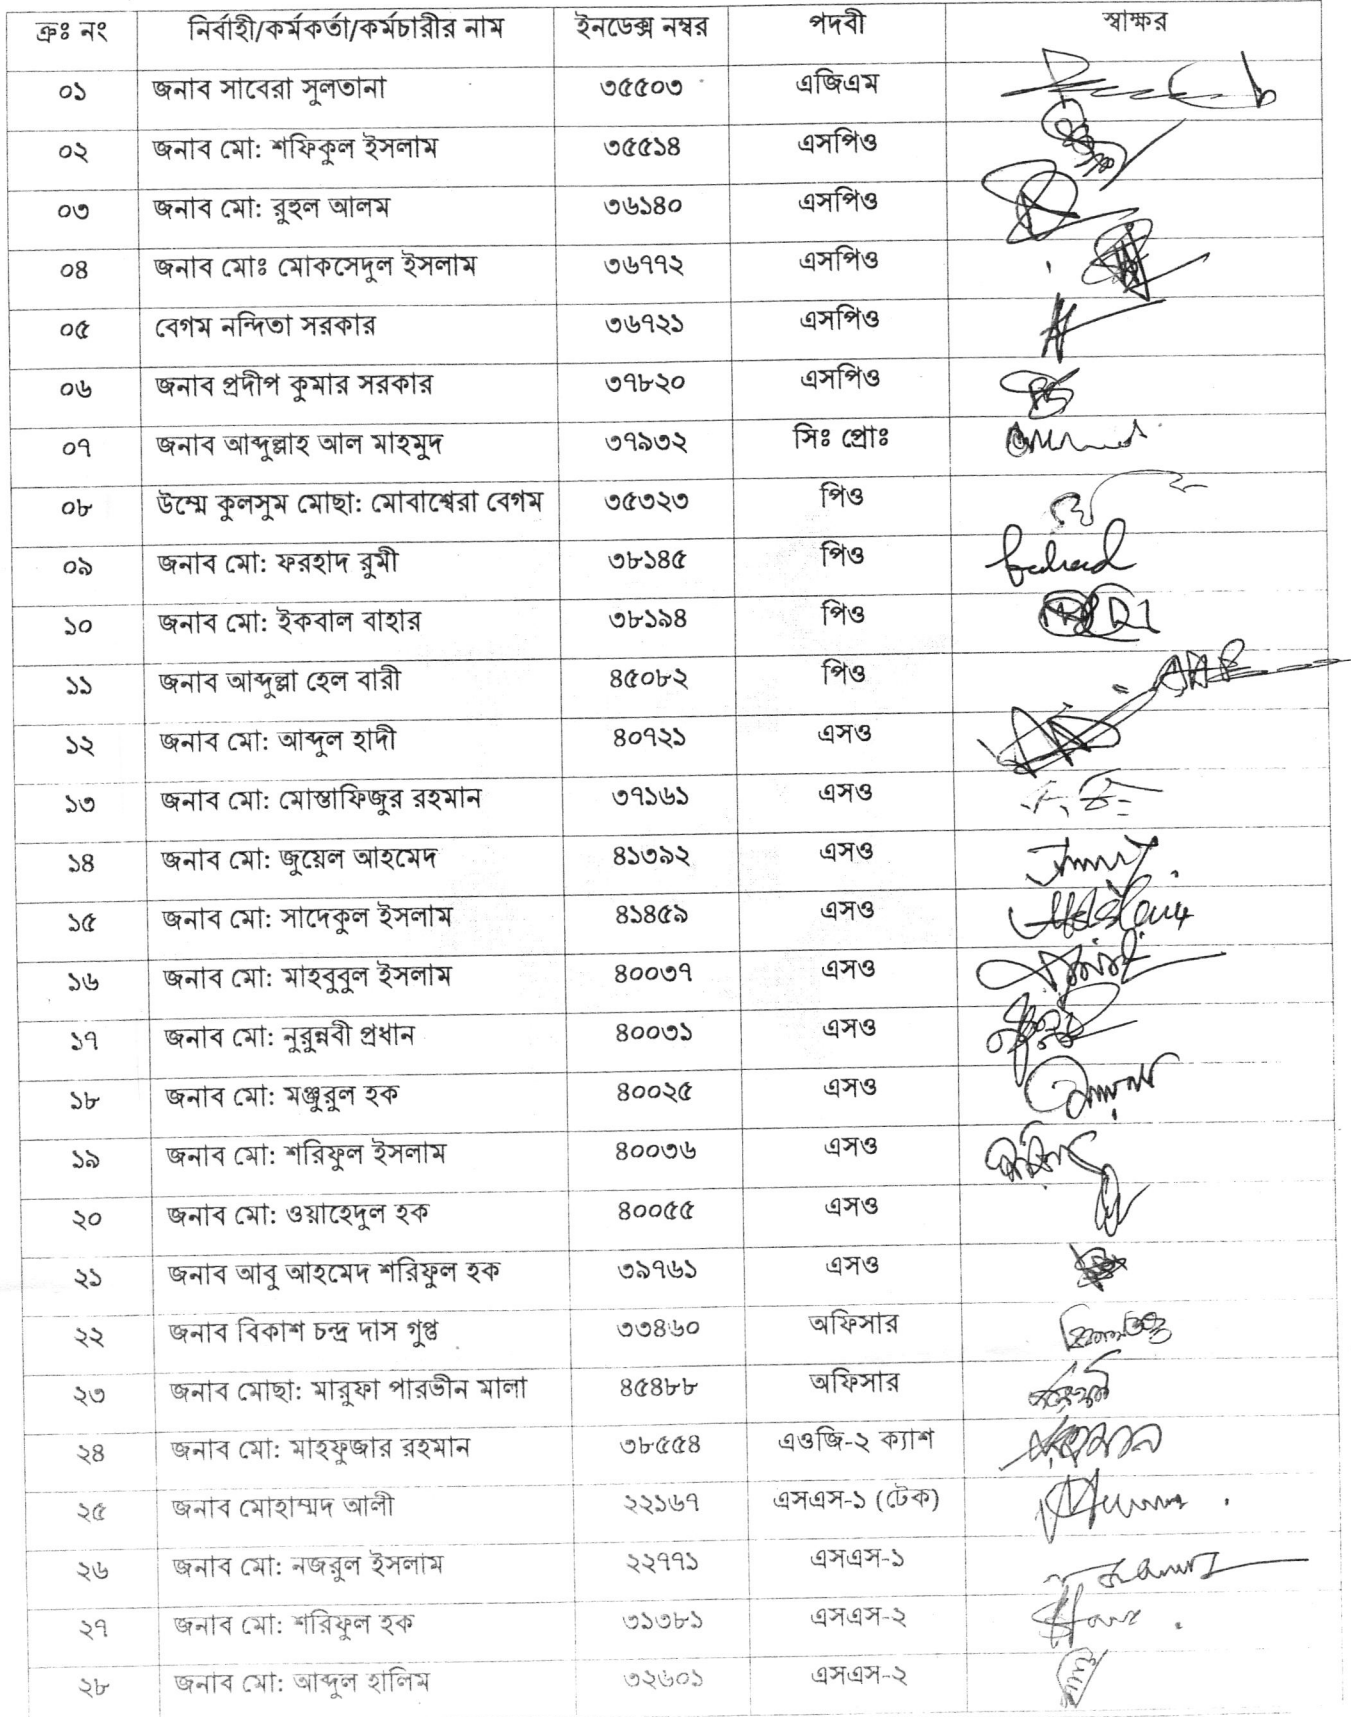 ক্রঃ নং নির্বাহী/কর্মকর্তা/কর্মচারীর নাম ইনডেক্স নম্বর পদবী স্বাক্ষর
০১ জনাব সাবেরা সুলতানা ৩৫৫০৩ এজিএম
০২ জনাব মো: শফিকুল ইসলাম ৩৫৫১৪ এসপিও
০৩ জনাব মো: রুহুল আলম ৩৬১৪০ এসপিও
০৪ জনাব মোঃ মোকসেদুল ইসলাম ৩৬৭৭২ এসপিও
০৫ বেগম নন্দিতা সরকার ৩৬৭২১ এসপিও
০৬ জনাব প্রদীপ কুমার সরকার ৩৭৮২০ এসপিও
০৭ জনাব আব্দুল্লাহ আল মাহমুদ ৩৭৯৩২ সিঃ প্রোঃ
০৮ উম্মে কুলসুম মোছা: মোবাশ্বেরা বেগম ৩৫৩২৩ পিও
০৯ জনাব মো: ফরহাদ রুমী ৩৮১৪৫ পিও
১০ জনাব মো: ইকবাল বাহার ৩৮১৯৪ পিও
১১ জনাব আব্দুল্লা হেল বারী ৪৫০৮২ পিও
১২ জনাব মো: আব্দুল হাদী ৪০৭২১ এসও
১৩ জনাব মো: মোস্তাফিজুর রহমান ৩৭১৬১ এসও
১৪ জনাব মো: জুয়েল আহমেদ ৪১৩৯২ এসও
১৫ জনাব মো: সাদেকুল ইসলাম ৪১৪৫৯ এসও
১৬ জনাব মো: মাহবুবুল ইসলাম ৪০০৩৭ এসও
১৭ জনাব মো: নুরুন্নবী প্রধান ৪০০৩১ এসও
১৮ জনাব মো: মঞ্জুরুল হক ৪০০২৫ এসও
১৯ জনাব মো: শরিফুল ইসলাম ৪০০৩৬ এসও
২০ জনাব মো: ওয়াহেদুল হক ৪০০৫৫ এসও
২১ জনাব আবু আহমেদ শরিফুল হক ৩৯৭৬১ এসও
২২ জনাব বিকাশ চন্দ্র দাস গুপ্ত ৩৩৪৬০ অফিসার
২৩ জনাব মোছা: মারুফা পারভীন মালা ৪৫৪৮৮ অফিসার
২৪ জনাব মো: মাহফুজার রহমান ৩৮৫৫৪ এওজি-২ ক্যাশ
২৫ জনাব মোহাম্মদ আলী ২২১৬৭ এসএস-১ (টেক)
২৬ জনাব মো: নজরুল ইসলাম ২২৭৭১ এসএস-১
২৭ জনাব মো: শরিফুল হক ৩১৩৮১ এসএস-২
২৮ জনাব মো: আব্দুল হালিম ৩২৬০১ এসএস-২